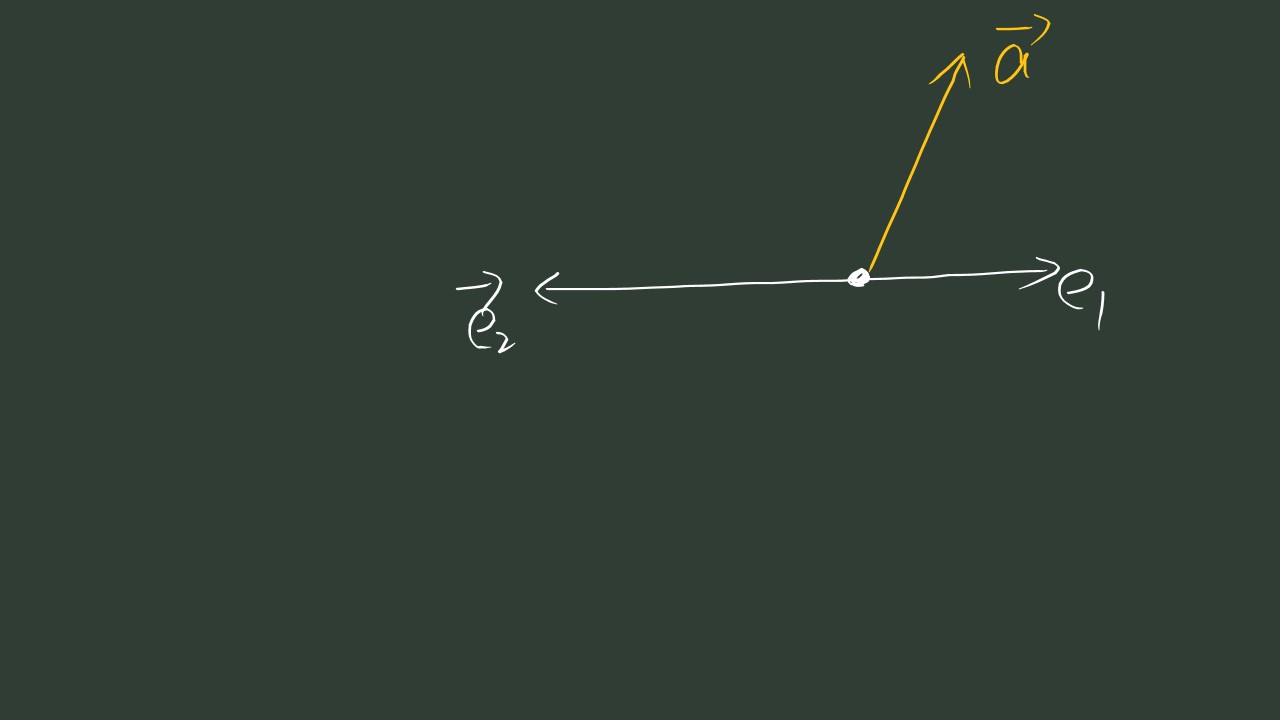 $\vec{a}$
$\vec{e}_2$ $e_1$